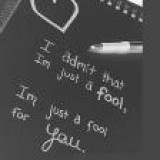 I admit that
Im just a fool,
Im just a fool
for you.